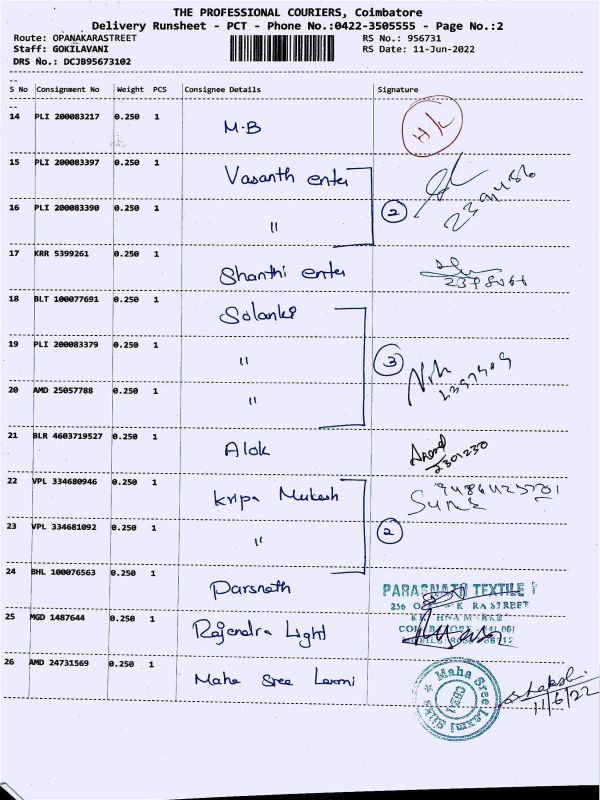 THE PROFESSIONAL COURIERS, Coimbatore
Delivery Runsheet - PCT - Phone No.:0422-3505555 - Page No.:2
Route: OPANAKARASTREET RS No.: 956731
Staff: GOKILAVANI RS Date: 11-Jun-2022
DRS No.: DCJB95673102
S No Consignment No Weight PCS Consignee Details Signature
14 PLI 200083217 0.250 1 M.B H/L
15 PLI 200083397 0.250 1 Vasanth enter
16 PLI 200083390 0.250 1 " 2
17 KRR 5399261 0.250 1 Shanthi enter
18 BLT 100077691 0.250 1 Solanki
19 PLI 200083379 0.250 1 " 3
20 AMD 25057788 0.250 1 "
21 BLR 4603719527 0.250 1 Alok Anand 2301230
22 VPL 334680946 0.250 1 Kripa Mukesh
23 VPL 334681092 0.250 1 " 2
24 BHL 100076563 0.250 1 Parsnath PARASNATH TEXTILE
256 STREET
25 MGD 1487644 0.250 1 Rajendra Light
26 AMD 24731569 0.250 1 Maha Sree Laxmi Maha Sree Laxmi Silks
11/6/22